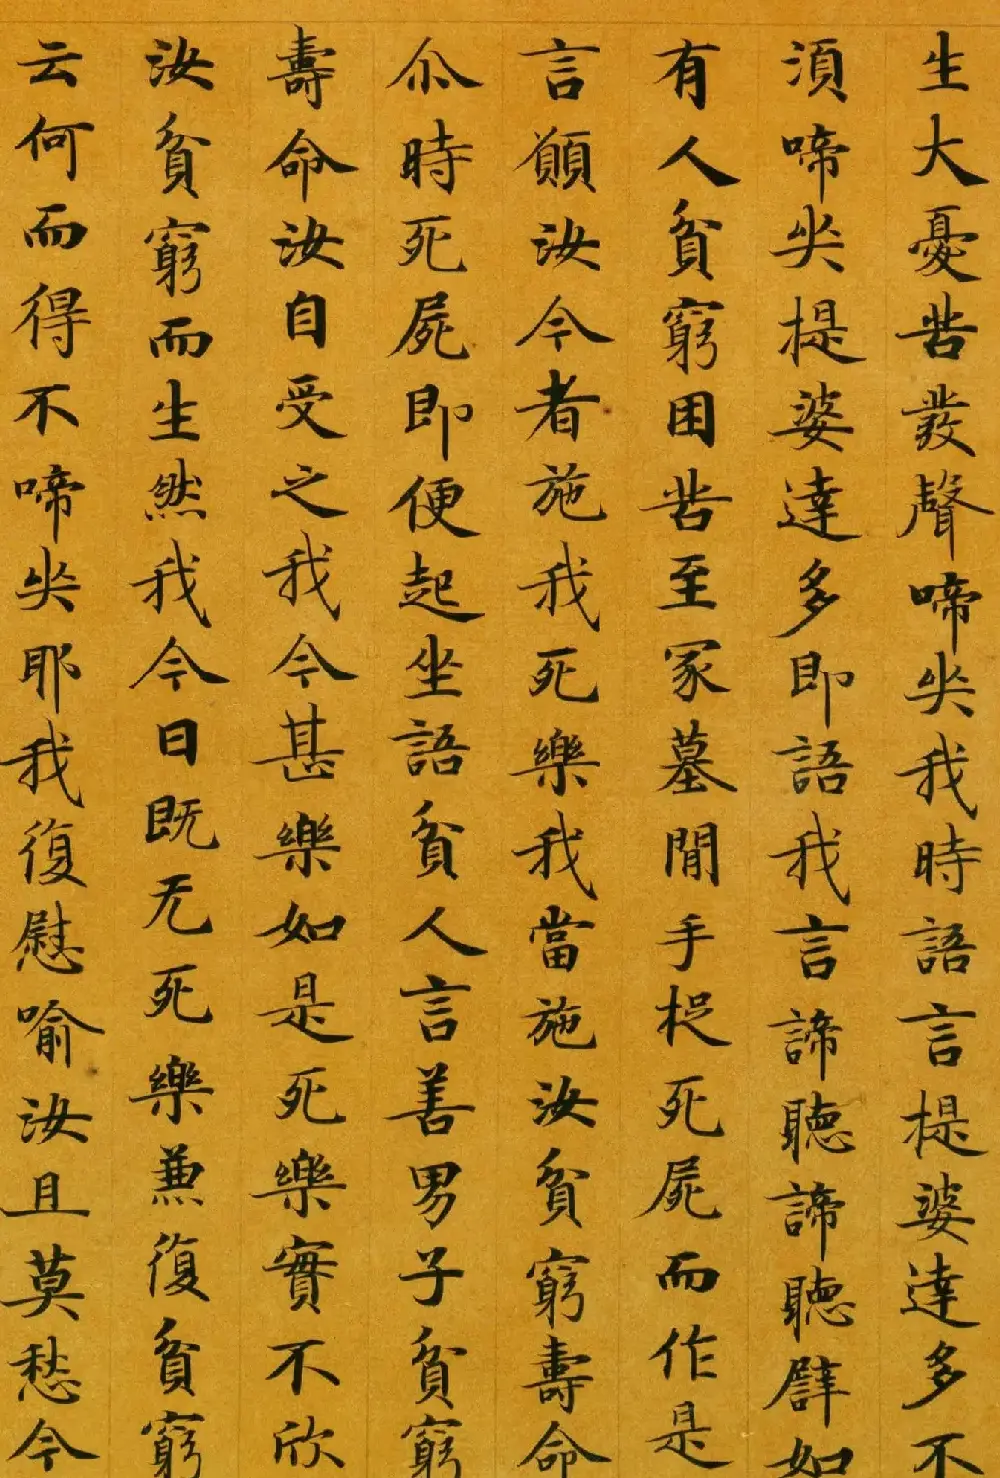 生大憂苦發聲啼哭我時語言提婆達多不
須啼哭提婆達多即語我言諦聽諦聽譬如
有人貧窮困苦至冢墓間手捉死屍而作是
言願汝今者施我死樂我當施汝貧窮壽命
尒時死屍即便起坐語貧人言善男子貧窮
壽命汝自受之我今甚樂如是死樂實不欣
汝貧窮而生然我今日既无死樂兼復貧窮
云何而得不啼哭耶我復慰喻汝且莫愁今